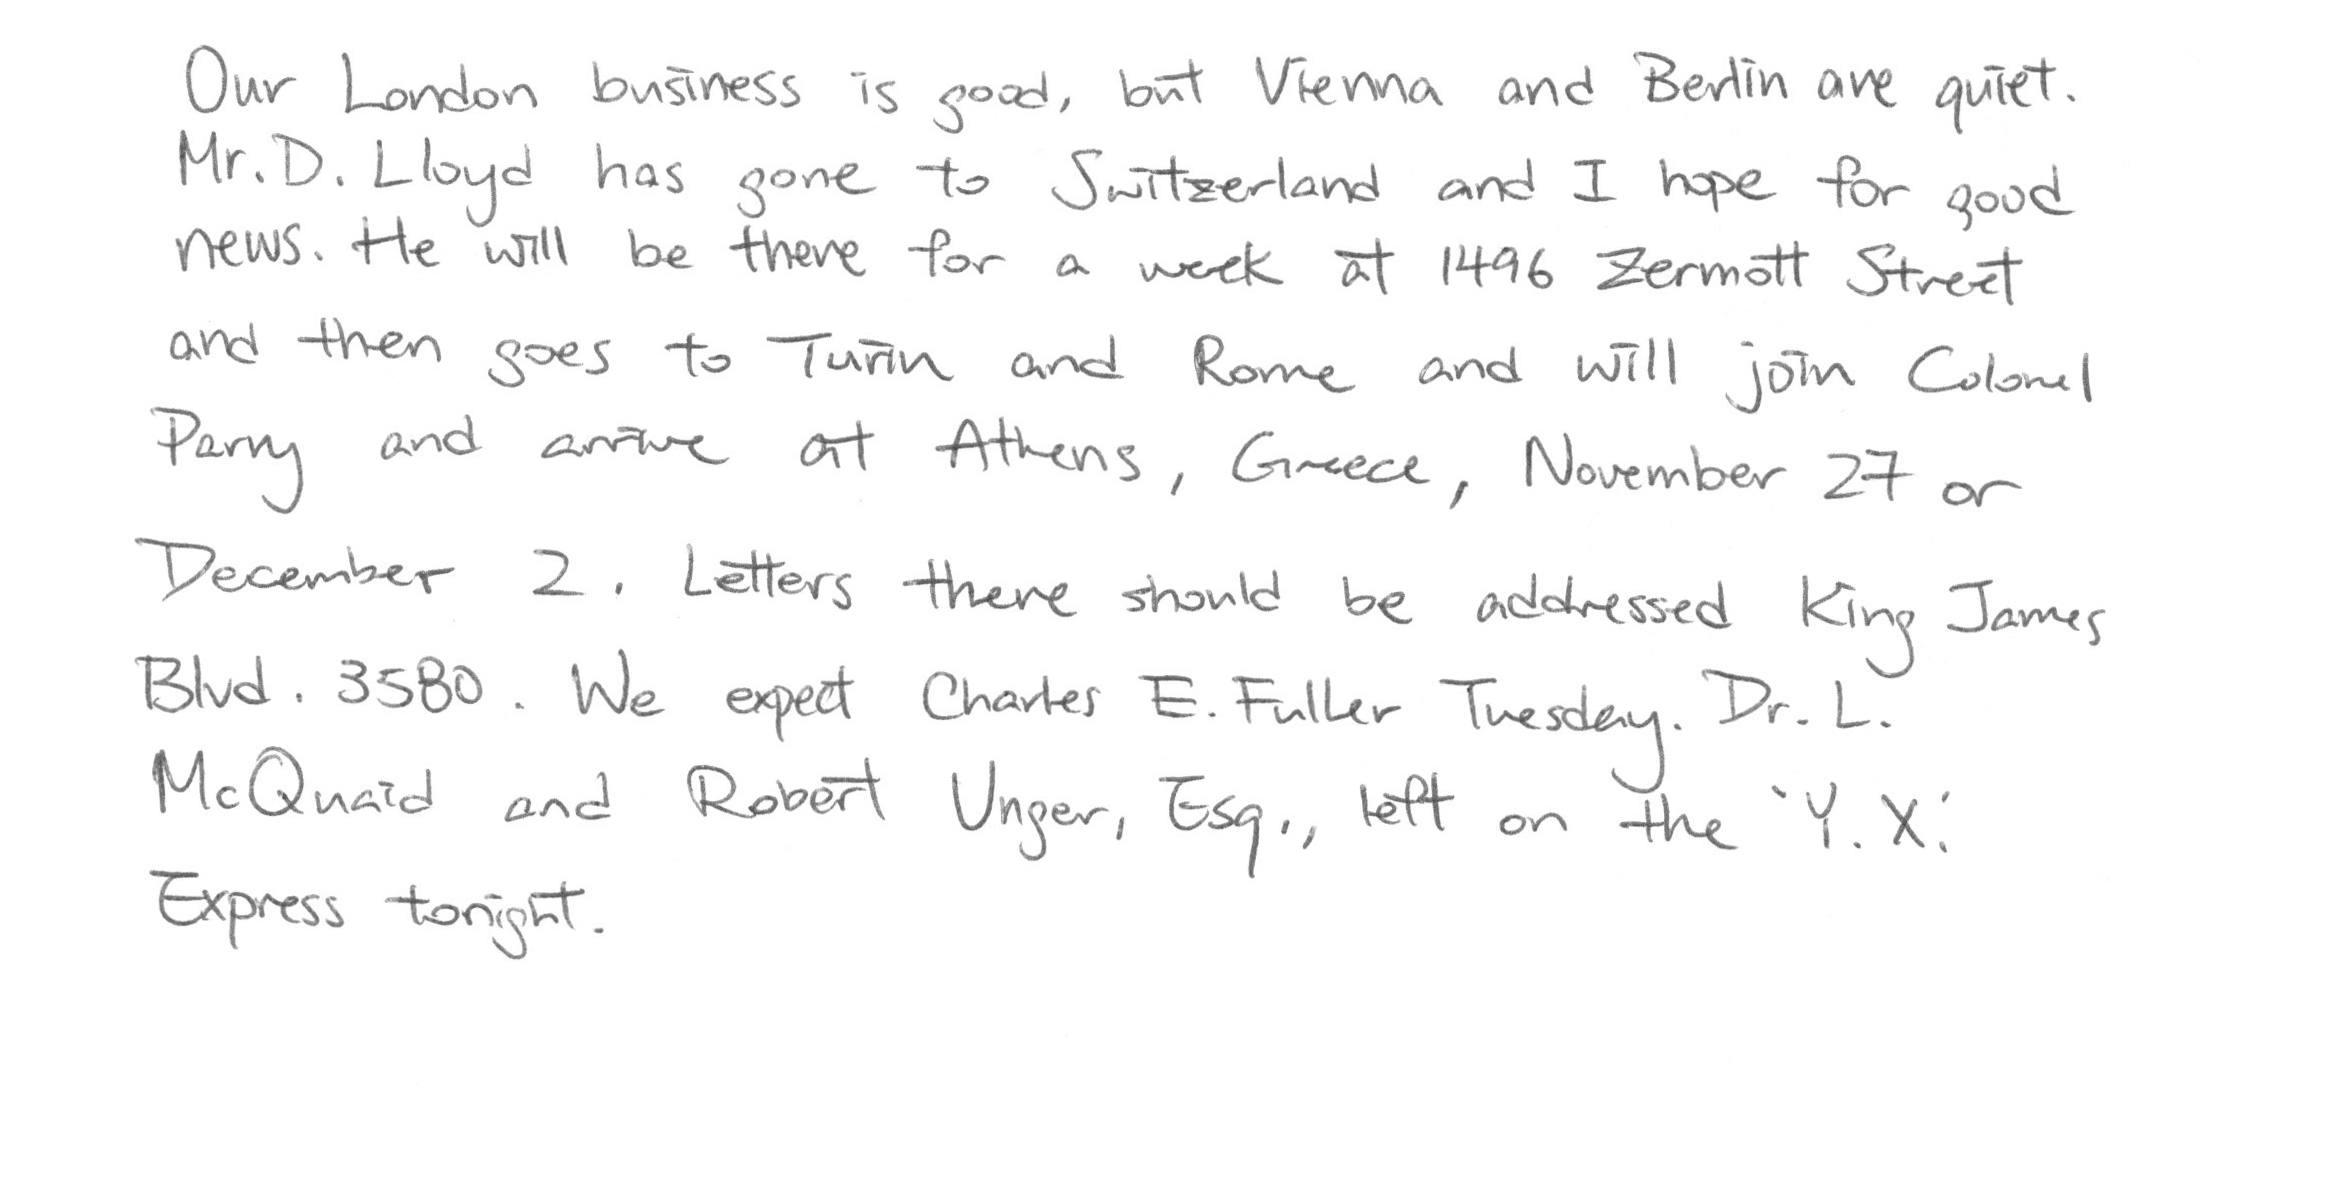 Our London business is good, but Vienna and Berlin are quiet.
Mr. D. Lloyd has gone to Switzerland and I hope for good
news. He will be there for a week at 1496 Zermott Street
and then goes to Turin and Rome and will join Colonel
Parry and arrive at Athens, Greece, November 27 or
December 2. Letters there should be addressed King James
Blvd. 3580. We expect Charles E. Fuller Tuesday. Dr. L.
McQuaid and Robert Unger, Esq., left on the 'Y. X.'
Express tonight.